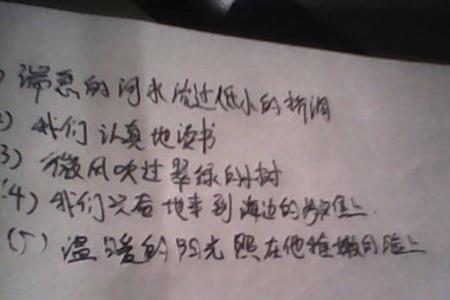 ) 湍急的河水流过低小的桥洞
2) 我们认真地读书
3) 微风吹过翠绿的小树
(4) 我们先后地来到海边的沙滩上.
(5) 温暖的阳光照在他稚嫩的脸上